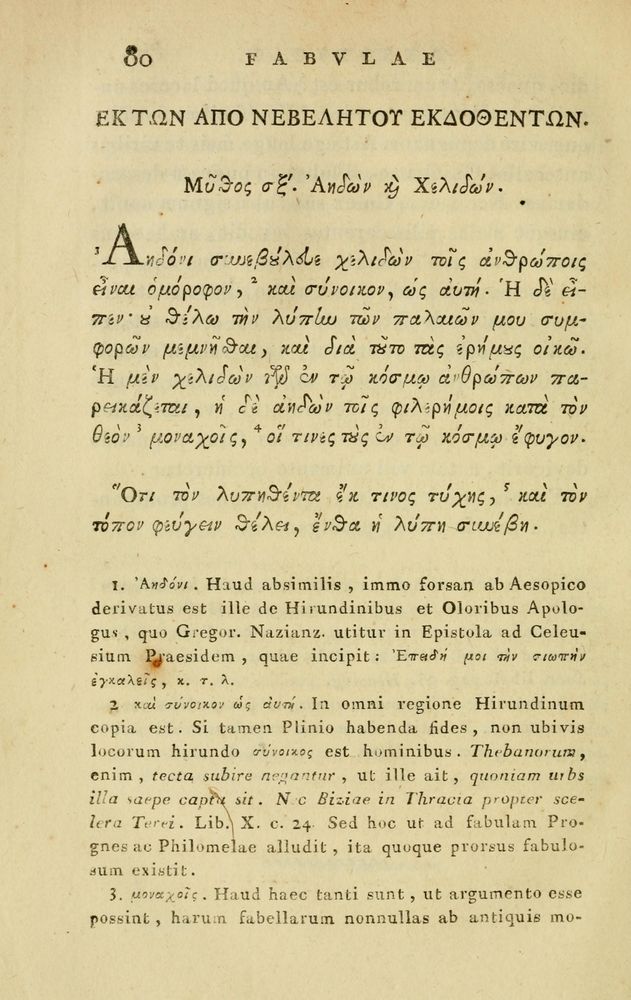 80 FABVLAE
ΕΚ ΤΩΝ ΑΠΟ ΝΕΒΕΛΗΤΟΥ ΕΚΔΟΘΕΝΤΩΝ.
Μῦθος σξ´. Ἀηδὼν ϗ Χελιδών.
¹ Ἀηδόνι συνεβούλευε χελιδὼν τοῖς ἀνθρώποις
εἶναι ὁμόροφον, ² καὶ σύνοικον, ὡς αὐτή. Ἡ δὲ εἶ-
πεν· οὐ θέλω τὴν λύπην τῶν παλαιῶν μου συμ-
φορῶν μεμνῆσθαι, καὶ διὰ τοῦτο τὰς ἐρήμους οἰκῶ.
Ἡ μὲν χελιδὼν τῷ ἐν τῷ κόσμῳ ἀνθρώπων πα-
ρεικάζεται, ἡ δὲ ἀηδὼν τοῖς φιλερήμοις κατὰ τὸν
θεὸν ³ μοναχοῖς, ⁴ οἵ τινες τοὺς ἐν τῷ κόσμῳ ἔφυγον.
Ὅτι τὸν λυπηθέντα ἔκ τινος τύχης, ⁵ καὶ τὸν
τόπον φεύγειν θέλει, ἔνθα ἡ λύπη συνέβη.
1. Ἀηδόνι. Haud absimilis, immo forsan ab Aesopico
derivatus est ille de Hirundinibus et Oloribus Apolo-
gus, quo Gregor. Nazianz. utitur in Epistola ad Celeu-
sium Praesidem, quae incipit: Ἐπειδή μοι τὴν σιωπὴν
ἐγκαλεῖς, κ. τ. λ.
2 καὶ σύνοικον ὡς αὐτή. In omni regione Hirundinum
copia est. Si tamen Plinio habenda fides, non ubivis
locorum hirundo σύνοικος est hominibus. Thebanorum,
enim, tecta subire negantur, ut ille ait, quoniam urbs
illa saepe capta sit. Nec Biziae in Thracia propter sce-
lera Terei. Lib. X. c. 24. Sed hoc ut ad fabulam Pro-
gnes ac Philomelae alludit, ita quoque prorsus fabulo-
sum existit.
3. μοναχοῖς. Haud haec tanti sunt, ut argumento esse
possint, harum fabellarum nonnullas ab antiquis mo-